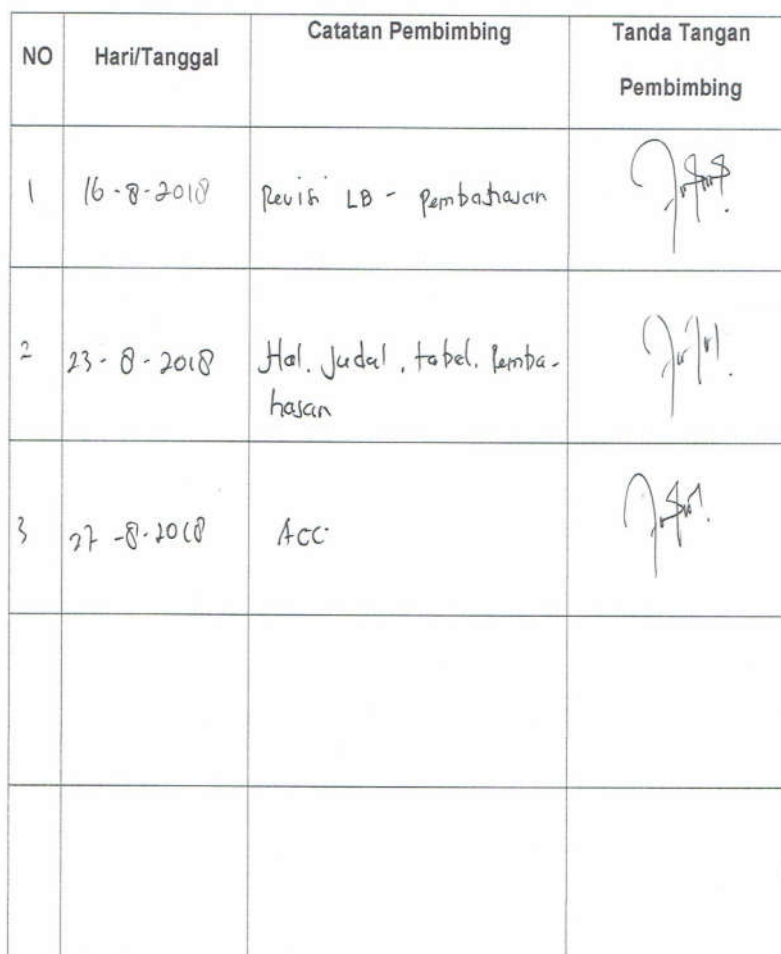 NO Hari/Tanggal Catatan Pembimbing Tanda Tangan
Pembimbing
1 16-8-2018 Revisi LB - Pembahasan
2 23-8-2018 Hal. Judul, tabel. Pemba-
hasan
3 27-8-2018 ACC